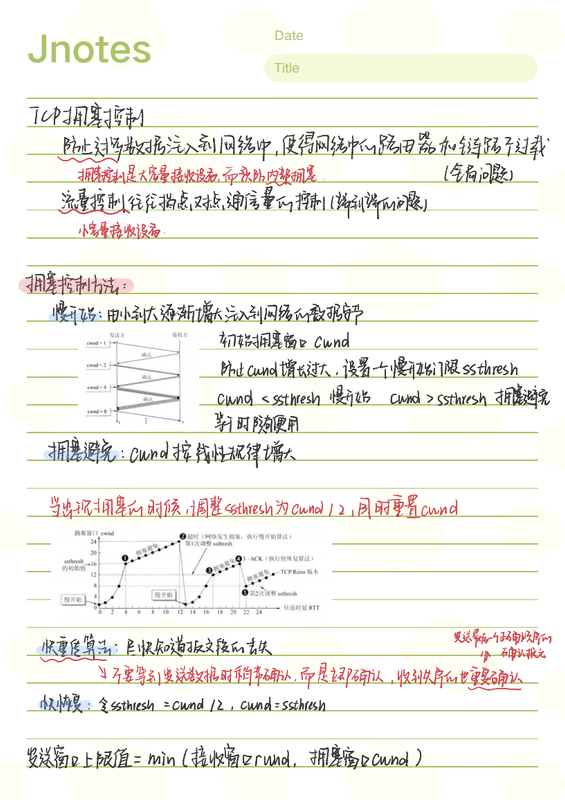 Jnotes
Date
Title
TCP拥塞控制
防止过多数据注入到网络中，使得网络中的路由器和链路不过载
拥塞控制是大容量接收设备，而 内部拥塞. (全局问题)
流量控制往往指点对点通信量的控制(端到端的问题)
小容量接收设备.
拥塞控制方法：
慢开始：由小到大逐渐增大注入到网络的数据字节
发送方 接收方
cwnd = 1
确认
cwnd = 2
确认
cwnd = 4
确认
cwnd = 8
t t
初始拥塞窗口 cwnd
防止cwnd增长过大，设置一个慢开始门限 ssthresh
cwnd < ssthresh 慢开始 cwnd > ssthresh 拥塞避免
等于时随便用
拥塞避免：cwnd按线性规律增大
当出现拥塞的时候，调整ssthresh为cwnd / 2，同时重置cwnd
拥塞窗口 cwnd
24
20
16
12
8
4
0
ssthresh
的初始值
慢开始
❶
拥塞避免
❷超时（网络发生拥塞，执行慢开始算法）
第1次调整 ssthresh
慢开始
❸
拥塞避免
❹ 3−ACK（执行快恢复算法）
TCP Reno 版本
❺ 第2次调整 ssthresh
0 2 4 6 8 10 12 14 16 18 20 22 24 往返时延 RTT
快重传算法：尽快知道报文段的丢失
发送最后一个 收到的
的 确认报文
不要等到发送数据时捎带确认，而是立即确认，收到失序的也重复确认
快恢复：令ssthresh = cwnd / 2，cwnd = ssthresh
发送窗口上限值 = min (接收窗口rwnd，拥塞窗口cwnd)